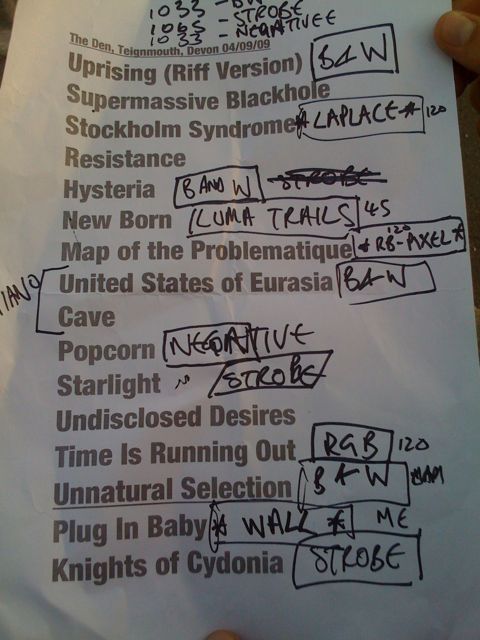 1033 -
1033 - STROBE
1033 - NEGATIVEE
The Den, Teignmouth, Devon 04/09/09
Uprising (Riff Version) B&W
Supermassive Blackhole
Stockholm Syndrome *LAPLACE* 120
Resistance
Hysteria B AND W STROBE
New Born LUMA TRAILS 45
Map of the Problematique *RB-AXEL* 120
United States of Eurasia B&W
Cave
Popcorn NEGATIVE
Starlight STROBE
Undisclosed Desires
Time Is Running Out RGB 120
Unnatural Selection B&W
Plug In Baby * WALL * ME
Knights of Cydonia STROBE